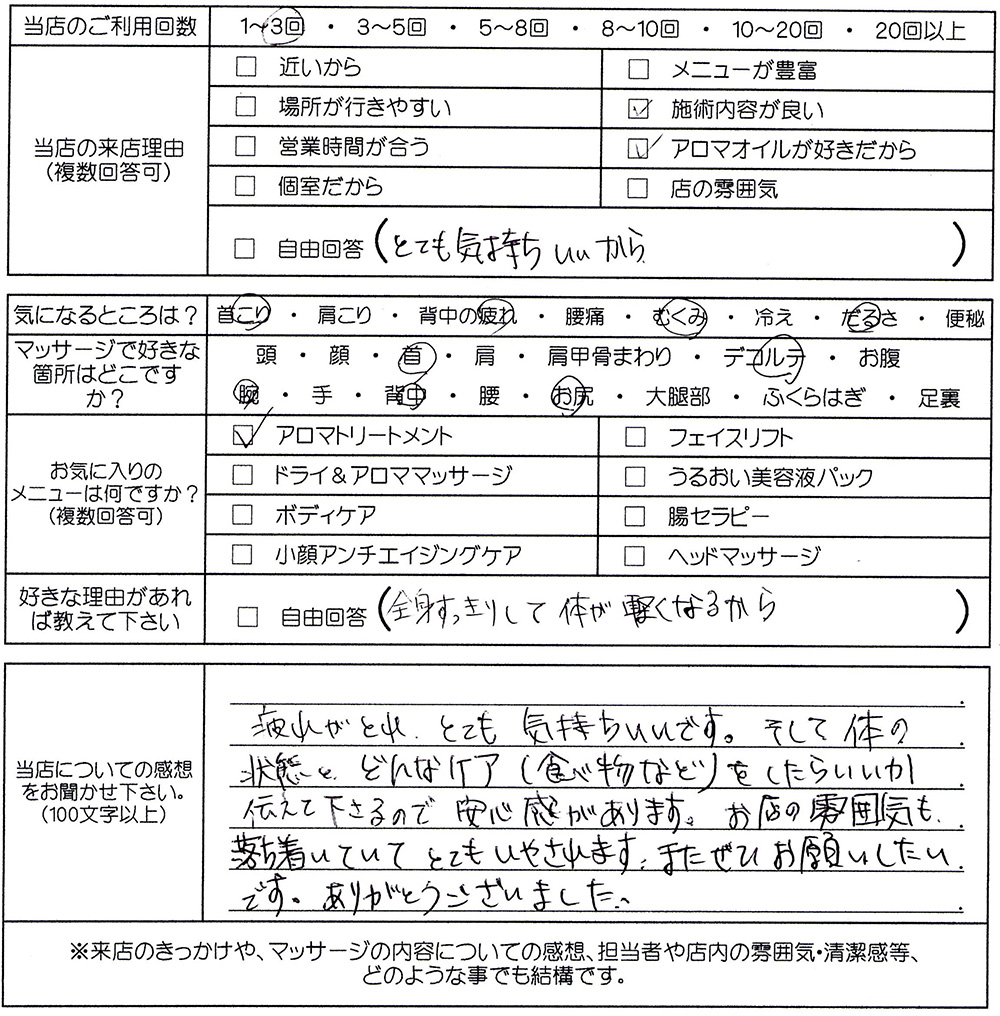 当店のご利用回数 1～3回 ・ 3～5回 ・ 5～8回 ・ 8～10回 ・ 10～20回 ・ 20回以上
当店の来店理由
（複数回答可）
□ 近いから
□ メニューが豊富
□ 場所が行きやすい
☑ 施術内容が良い
□ 営業時間が合う
☑ アロマオイルが好きだから
□ 個室だから
□ 店の雰囲気
□ 自由回答（とても気持ちいいから）
気になるところは？ 首こり ・ 肩こり ・ 背中の疲れ ・ 腰痛 ・ むくみ ・ 冷え ・ だるさ ・ 便秘
マッサージで好きな
箇所はどこです
か？
頭 ・ 顔 ・ 首 ・ 肩 ・ 肩甲骨まわり ・ デコルテ ・ お腹
腕 ・ 手 ・ 背中 ・ 腰 ・ お尻 ・ 大腿部 ・ ふくらはぎ ・ 足裏
お気に入りの
メニューは何ですか？
（複数回答可）
☑ アロマトリートメント
□ フェイスリフト
□ ドライ＆アロママッサージ
□ うるおい美容液パック
□ ボディケア
□ 腸セラピー
□ 小顔アンチエイジングケア
□ ヘッドマッサージ
好きな理由があれ
ば教えて下さい
□ 自由回答（全身すっきりして体が軽くなるから）
当店についての感想
をお聞かせ下さい。
（100文字以上）
疲れがとれ、とても気持ちいいです。そして体の
状態と、どんなケア（食べ物など）をしたらいいか
伝えて下さるので安心感があります。お店の雰囲気も、
落ち着いていてとてもいやされます。またぜひお願いしたい
です。ありがとうございました。
※来店のきっかけや、マッサージの内容についての感想、担当者や店内の雰囲気・清潔感等、
どのような事でも結構です。